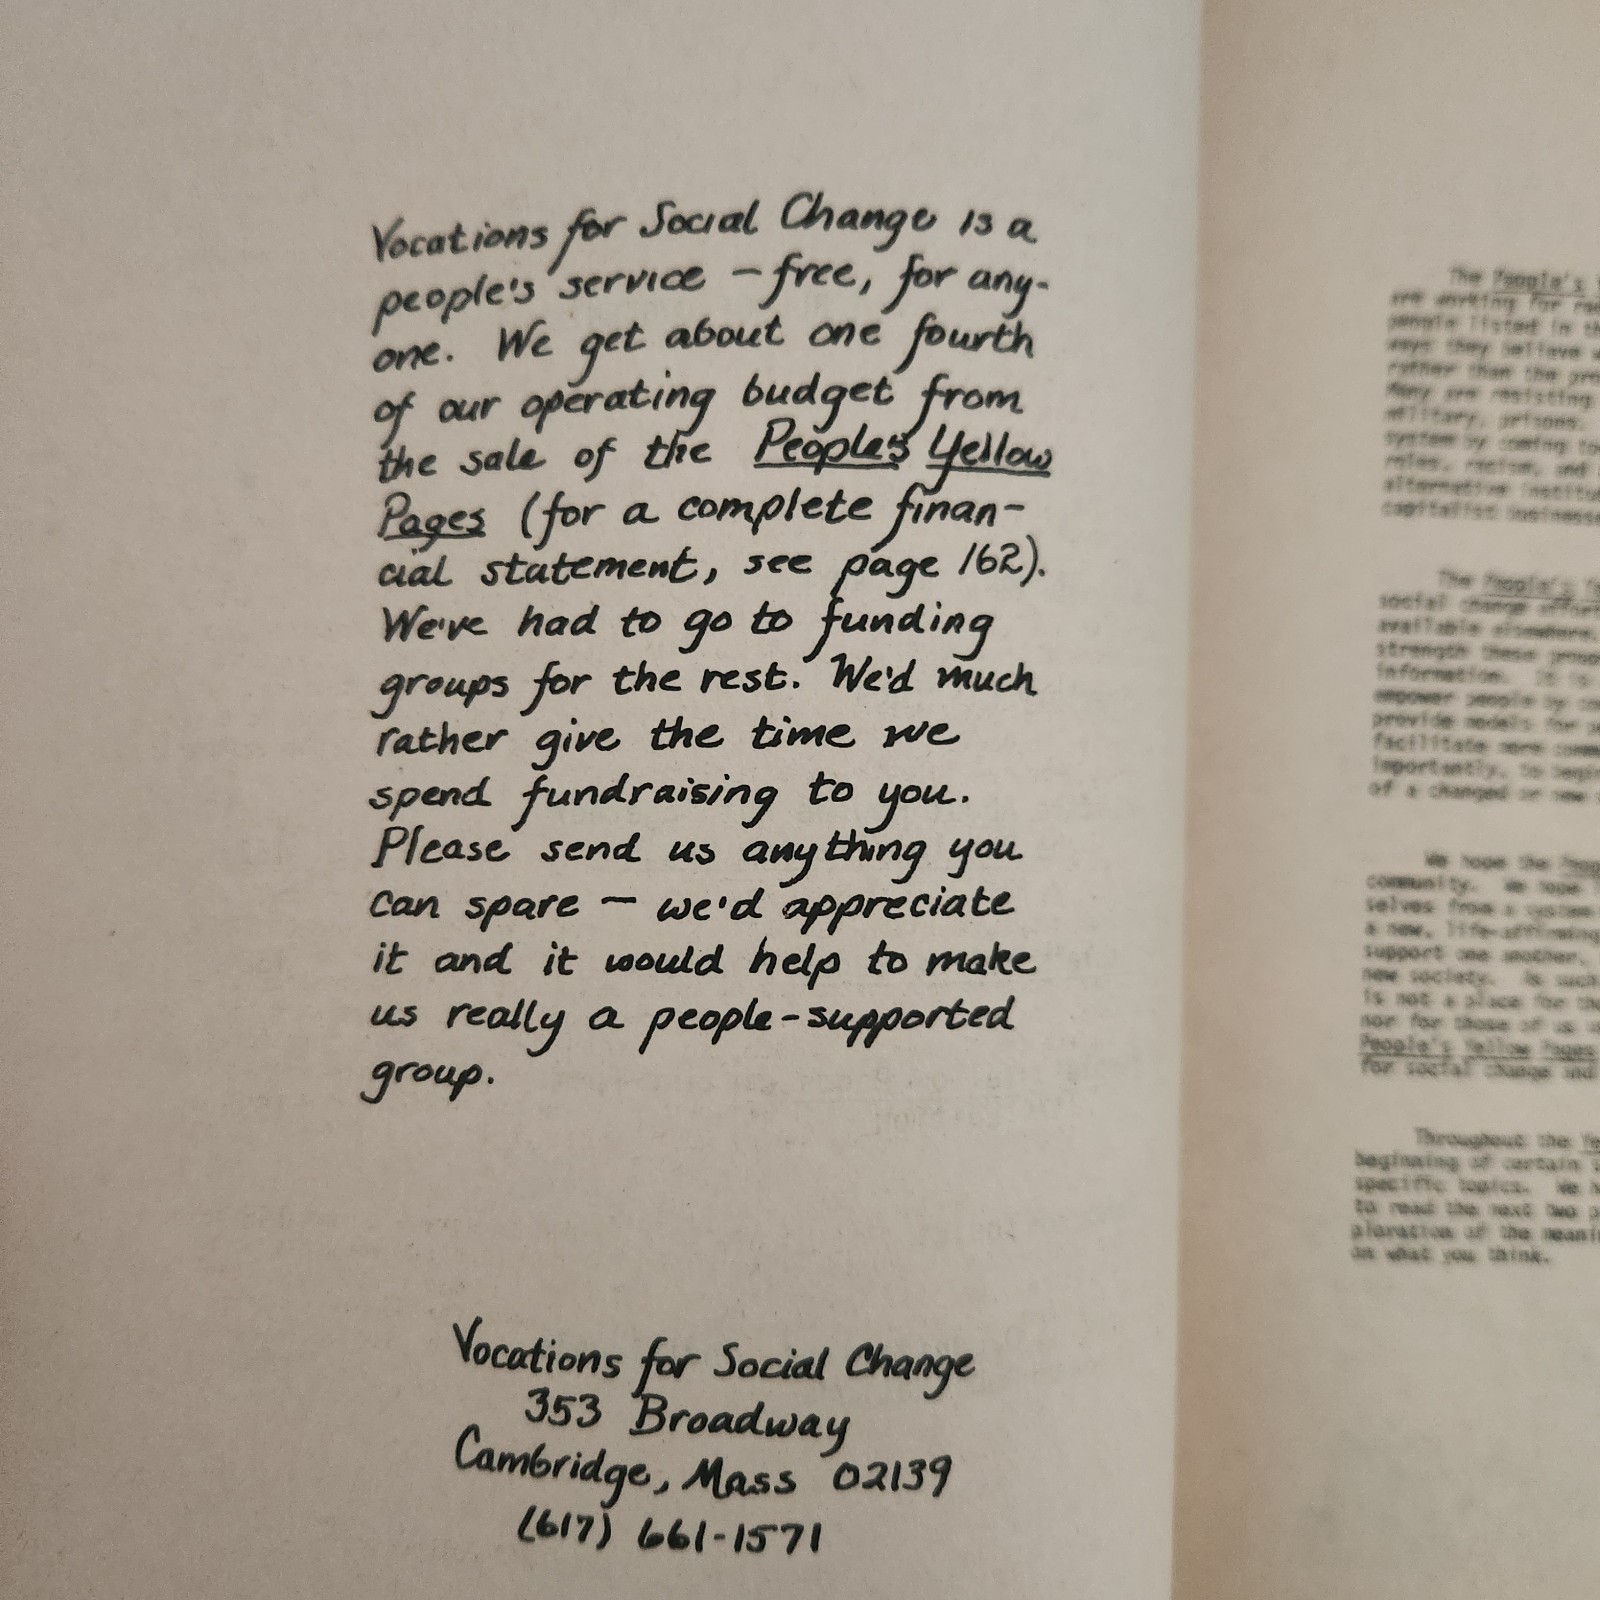 Vocations for Social Change is a
people's service – free, for any-
one. We get about one fourth
of our operating budget from
the sale of the People's Yellow
Pages (for a complete finan-
cial statement, see page 162).
We've had to go to funding
groups for the rest. We'd much
rather give the time we
spend fundraising to you.
Please send us anything you
can spare – we'd appreciate
it and it would help to make
us really a people-supported
group.
Vocations for Social Change
353 Broadway
Cambridge, Mass 02139
(617) 661-1571
The People's
are working for
people listed in
ways they believe
rather than the
Many are resisting
military, prisons,
system by coming
roles, racism, and
alternative
capitalist
The People's
social change
available elsewhere.
strength these
information. It is
empower people by
provide models for
facilitate more
importantly, to begin
of a changed or new
We hope the
community. We hope
selves from a system
a new, life-affirming
support one another,
new society. As such
is not a place for
nor for those of us
People's Yellow Pages
for social change and
Throughout the
beginning of certain
specific topics. We
to read the next two
ploration of the
on what you think.